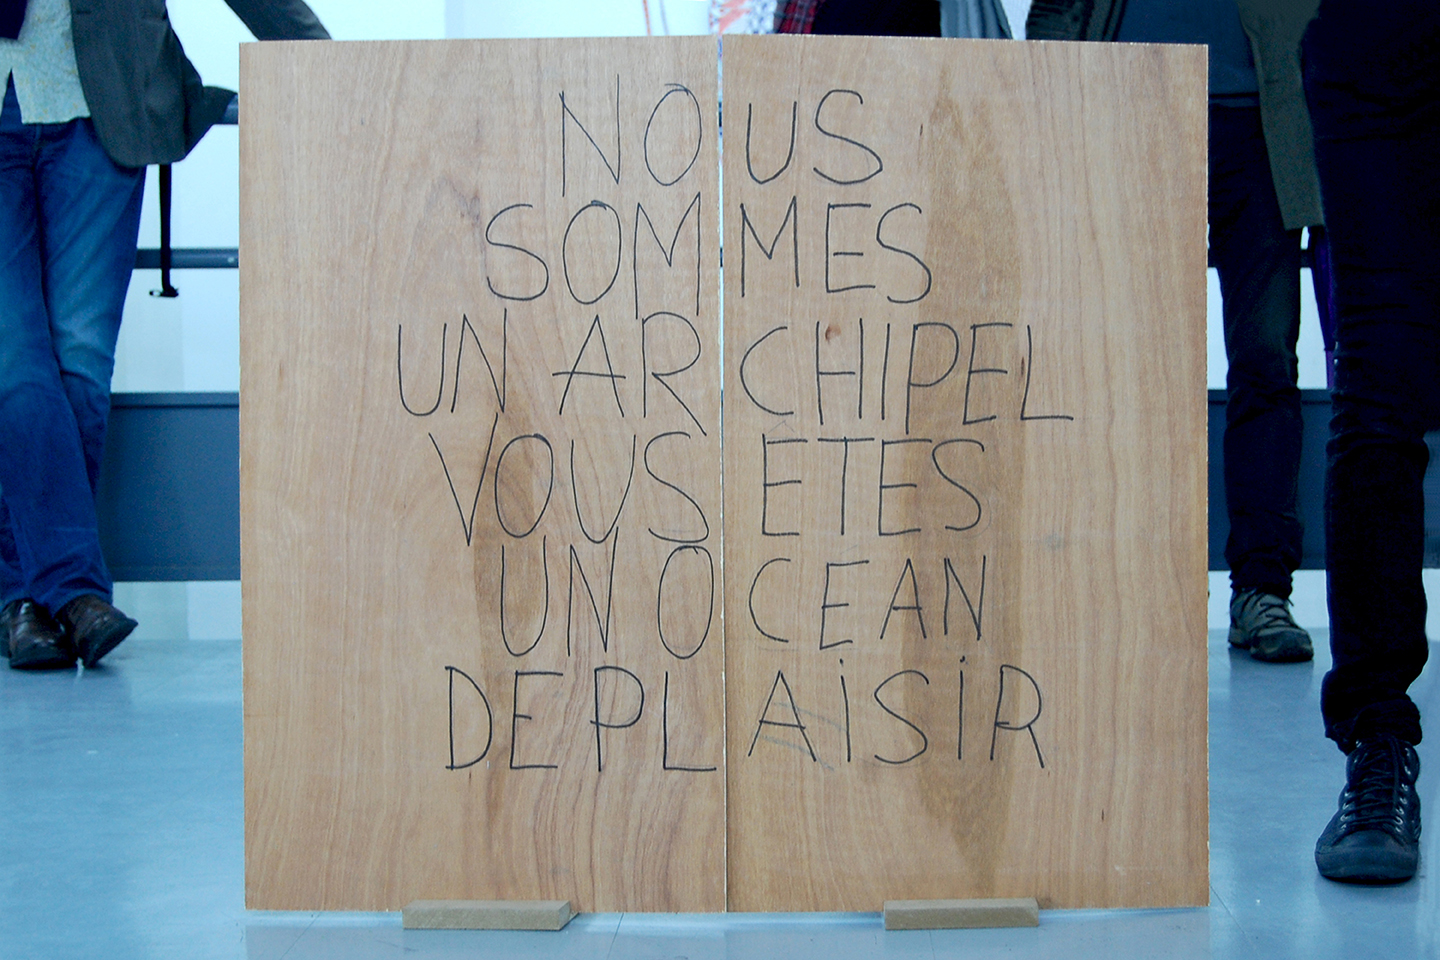 NOUS
SOMMES
UN ARCHIPEL
VOUS ÊTES
UN OCEAN
DE PLAiSiR